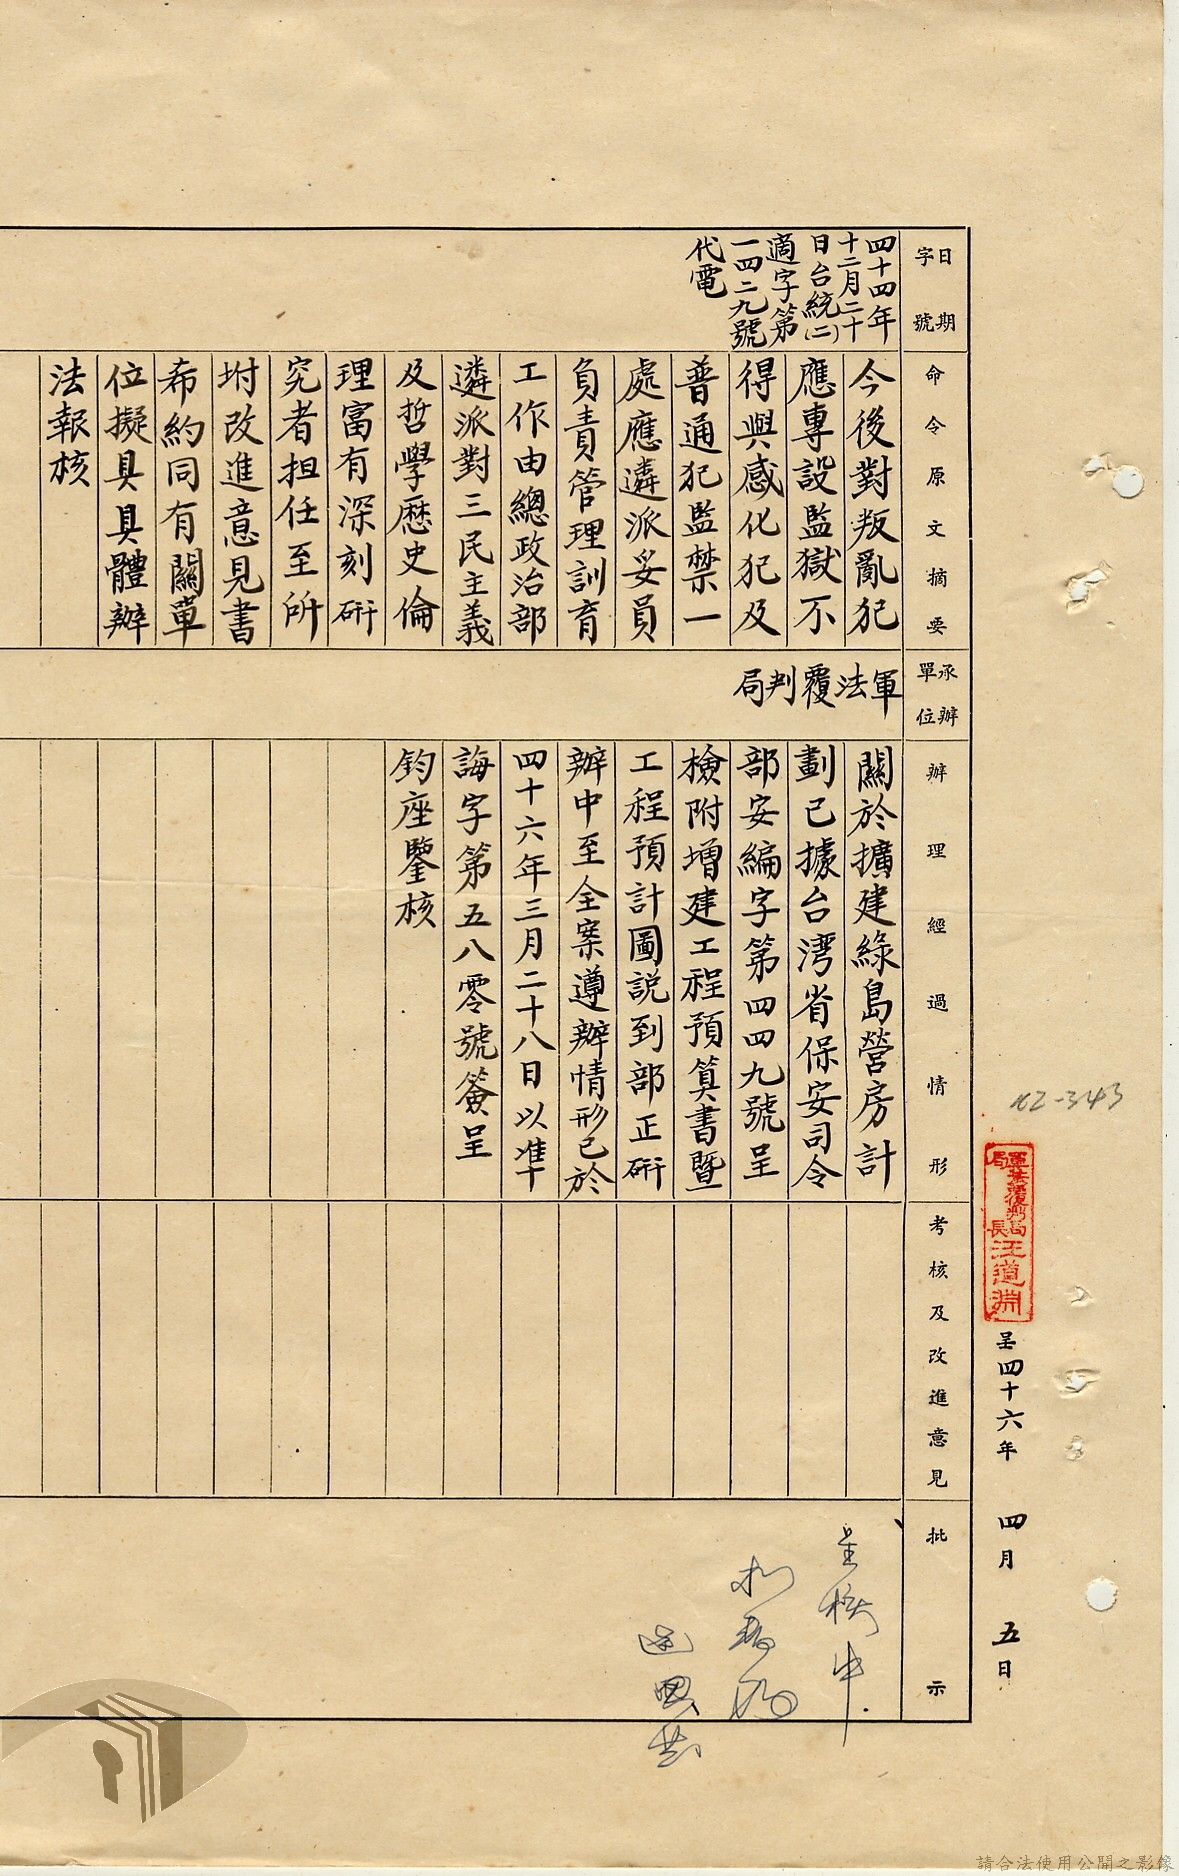 軍法覆判局局長汪道淵
呈四十六年 四月 五日
日期字號
命令原文摘要
承辦單位
辦理經過情形
考核及改進意見
批示
四十四年
十二月二十
日台統(二)
適字第
一四二九號
代電
今後對叛亂犯
應專設監獄不
得與感化犯及
普通犯監禁一
處應遴派妥員
負責管理訓育
工作由總政治部
遴派對三民主義
及哲學歷史倫
理富有深刻研
究者担任至所
坿改進意見書
希約同有關單
位擬具具體辦
法報核
軍法覆判局
關於擴建綠島營房計
劃已據台湾省保安司令
部安編字第四四九號呈
檢附增建工程預算書暨
工程預計圖説到部正研
辦中至全案遵辦情形已於
四十六年三月二十八日以準
誨字第五八零號簽呈
鈞座鑒核
呈核中.
62-343
請合法使用公開之影像